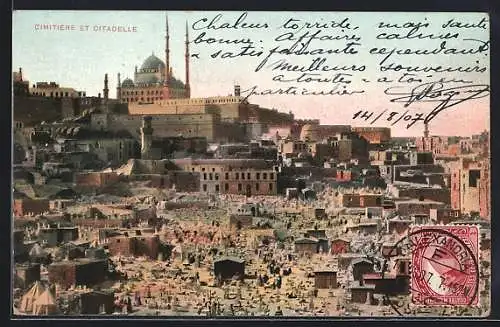 CIMITIÈRE ET CITADELLE
Chaleur torride, mais santé
bonne. Affaires calmes
satisfaisantes cependant
Meilleurs souvenirs
a toutes + à toi en
particulier
14/8/07
ALEXANDRI